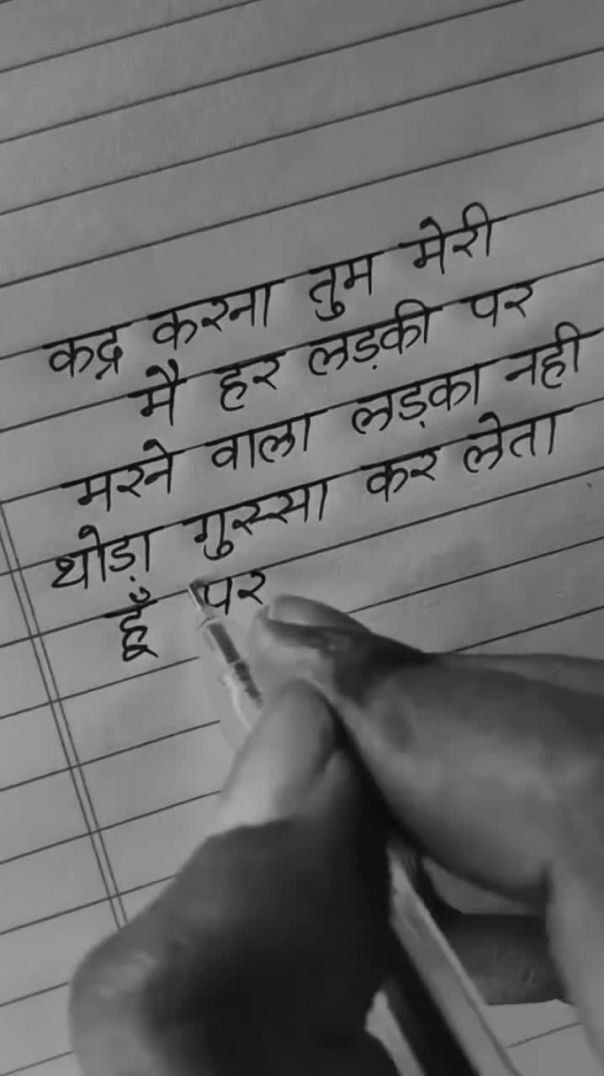 कद्र करना तुम मेरी
मै हर लड़की पर
मरने वाला लड़का नही
थोड़ा गुस्सा कर लेता
हूँ पर